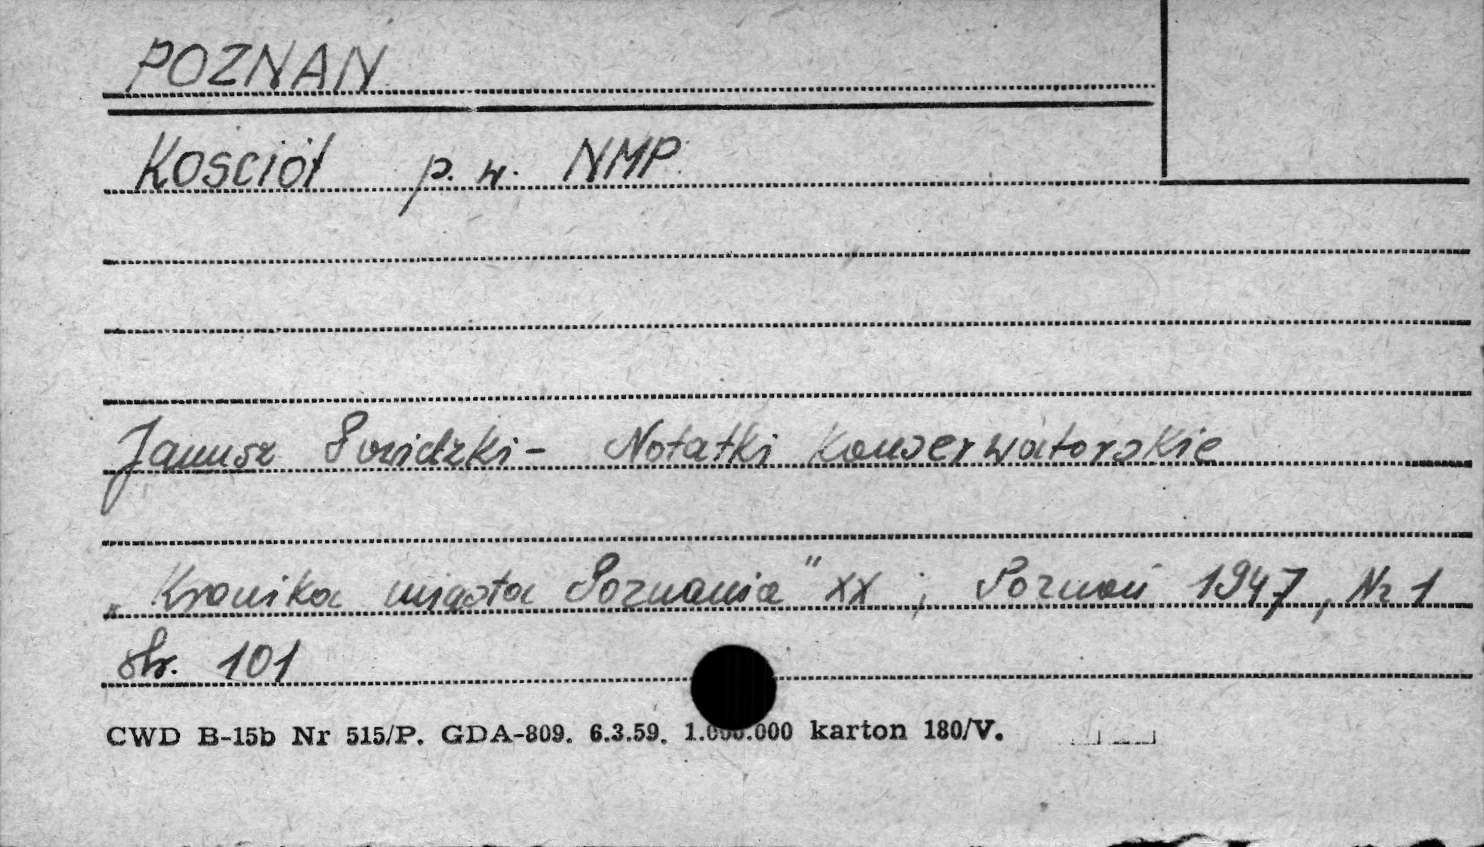 POZNAN
Kościół p. w. NMP
Janusz Powidzki - Notatki konserwatorskie
„Kronika miasta Poznania" XX ; Poznań 1947, Nr 1
str. 101
CWD B-15b Nr 515/P. GDA-809. 6.3.59. 1.000.000 karton 180/V.